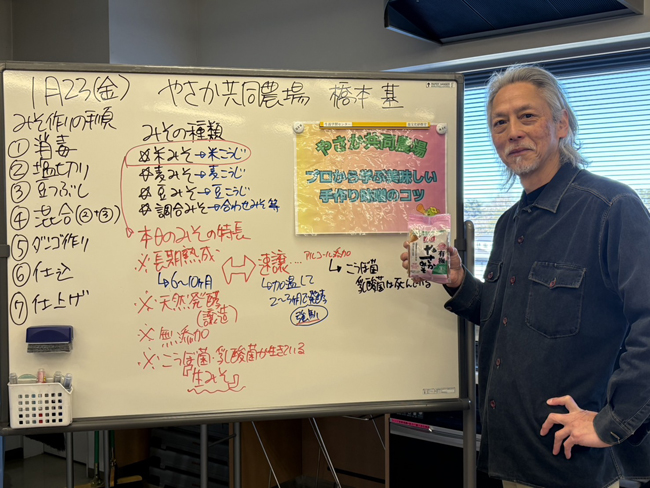 1月23(金) やさか共同農場 橋本 基
みそ作りの手順
① 消毒
② 塩切り
③ 豆つぶし
④ 混合(②+③)
⑤ ダンゴ作り
⑥ 仕込
⑦ 仕上げ
みその種類
米みそ→米こうじ
麦みそ→麦こうじ
豆みそ→豆こうじ
調合みそ→合わせみそ 等
本日のみその特長
※長期熟成
↳6〜10ヶ月
速譲…アルコール添加
↳加温して
2〜3ヶ月で発酵
強制
↳こうぼ菌
乳酸菌は死んでいる
※天然発酵
(譲造)
※無添加
※こうぼ菌・乳酸菌が生きている
『生みそ』
やさか共同農場
プロから学ぶ美味しい
手作り味噌のコツ